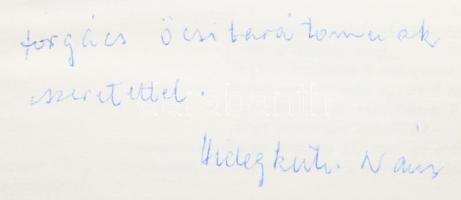 forgács öcsi barátomnak
szeretettel.
Hidegkuti Nándor